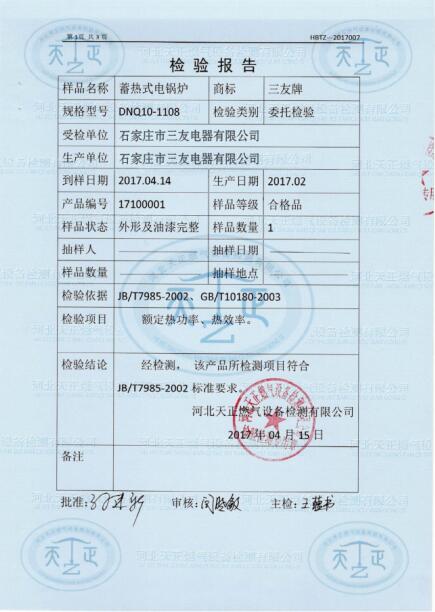 第1页 共3页 HBTZ-2017007
检验报告
样品名称 蓄热式电锅炉 商标 三友牌
规格型号 DNQ10-1108 检验类别 委托检验
受检单位 石家庄市三友电器有限公司
生产单位 石家庄市三友电器有限公司
到样日期 2017.04.14 生产日期 2017.02
产品编号 17100001 样品等级 合格品
样品状态 外形及油漆完整 样品数量 1
抽样人 抽样日期
样品数量 抽样地点
检验依据 JB/T7985-2002、GB/T10180-2003
检验项目 额定热功率、热效率。
检验结论 经检测，该产品所检测项目符合
JB/T7985-2002 标准要求。
河北天正燃气设备检测有限公司
2017 年 04 月 15 日
备注
批准: 审核: 主检: